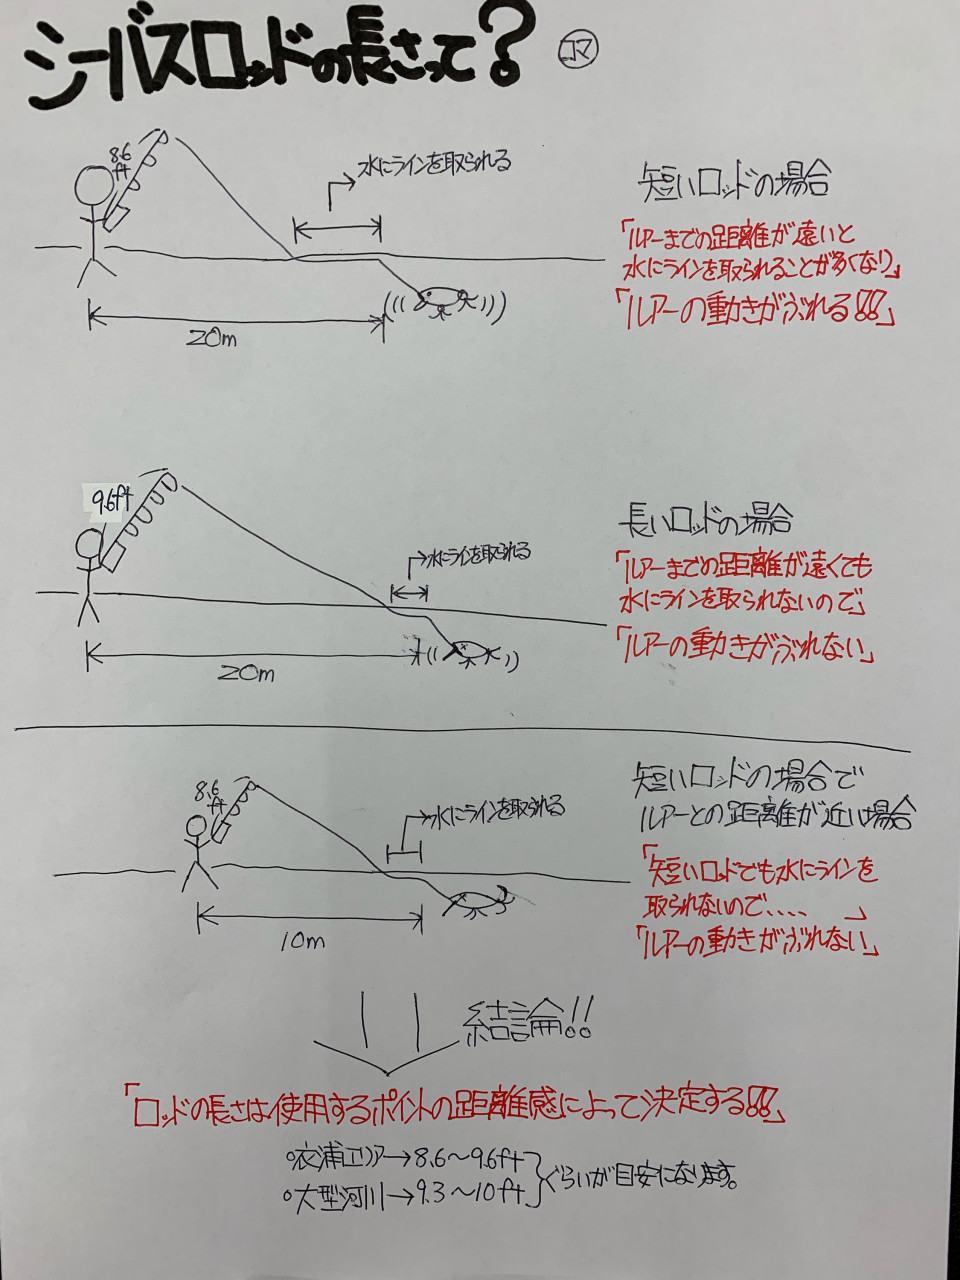 シーバスロッドの長さって?
コマ
8.6
ft
水にラインを取られる
20m
短いロッドの場合
「ルアーまでの距離が遠いと
水にラインを取られることが多くなり」
「ルアーの動きがぶれる!!」
9.6ft
水にラインを取られる
20m
長いロッドの場合
「ルアーまでの距離が遠くても
水にラインを取られないので」
「ルアーの動きがぶれない」
8.6
ft
水にラインを取られる
10m
短いロッドの場合で
ルアーとの距離が近い場合
「短いロッドでも水にラインを
取られないので、、、、」
「ルアーの動きがぶれない」
結論!!
「ロッドの長さは使用するポイントの距離感によって決定する!!」
○衣浦エリア→8.6〜9.6ft
○大型河川→9.3〜10ft
ぐらいが目安になります。